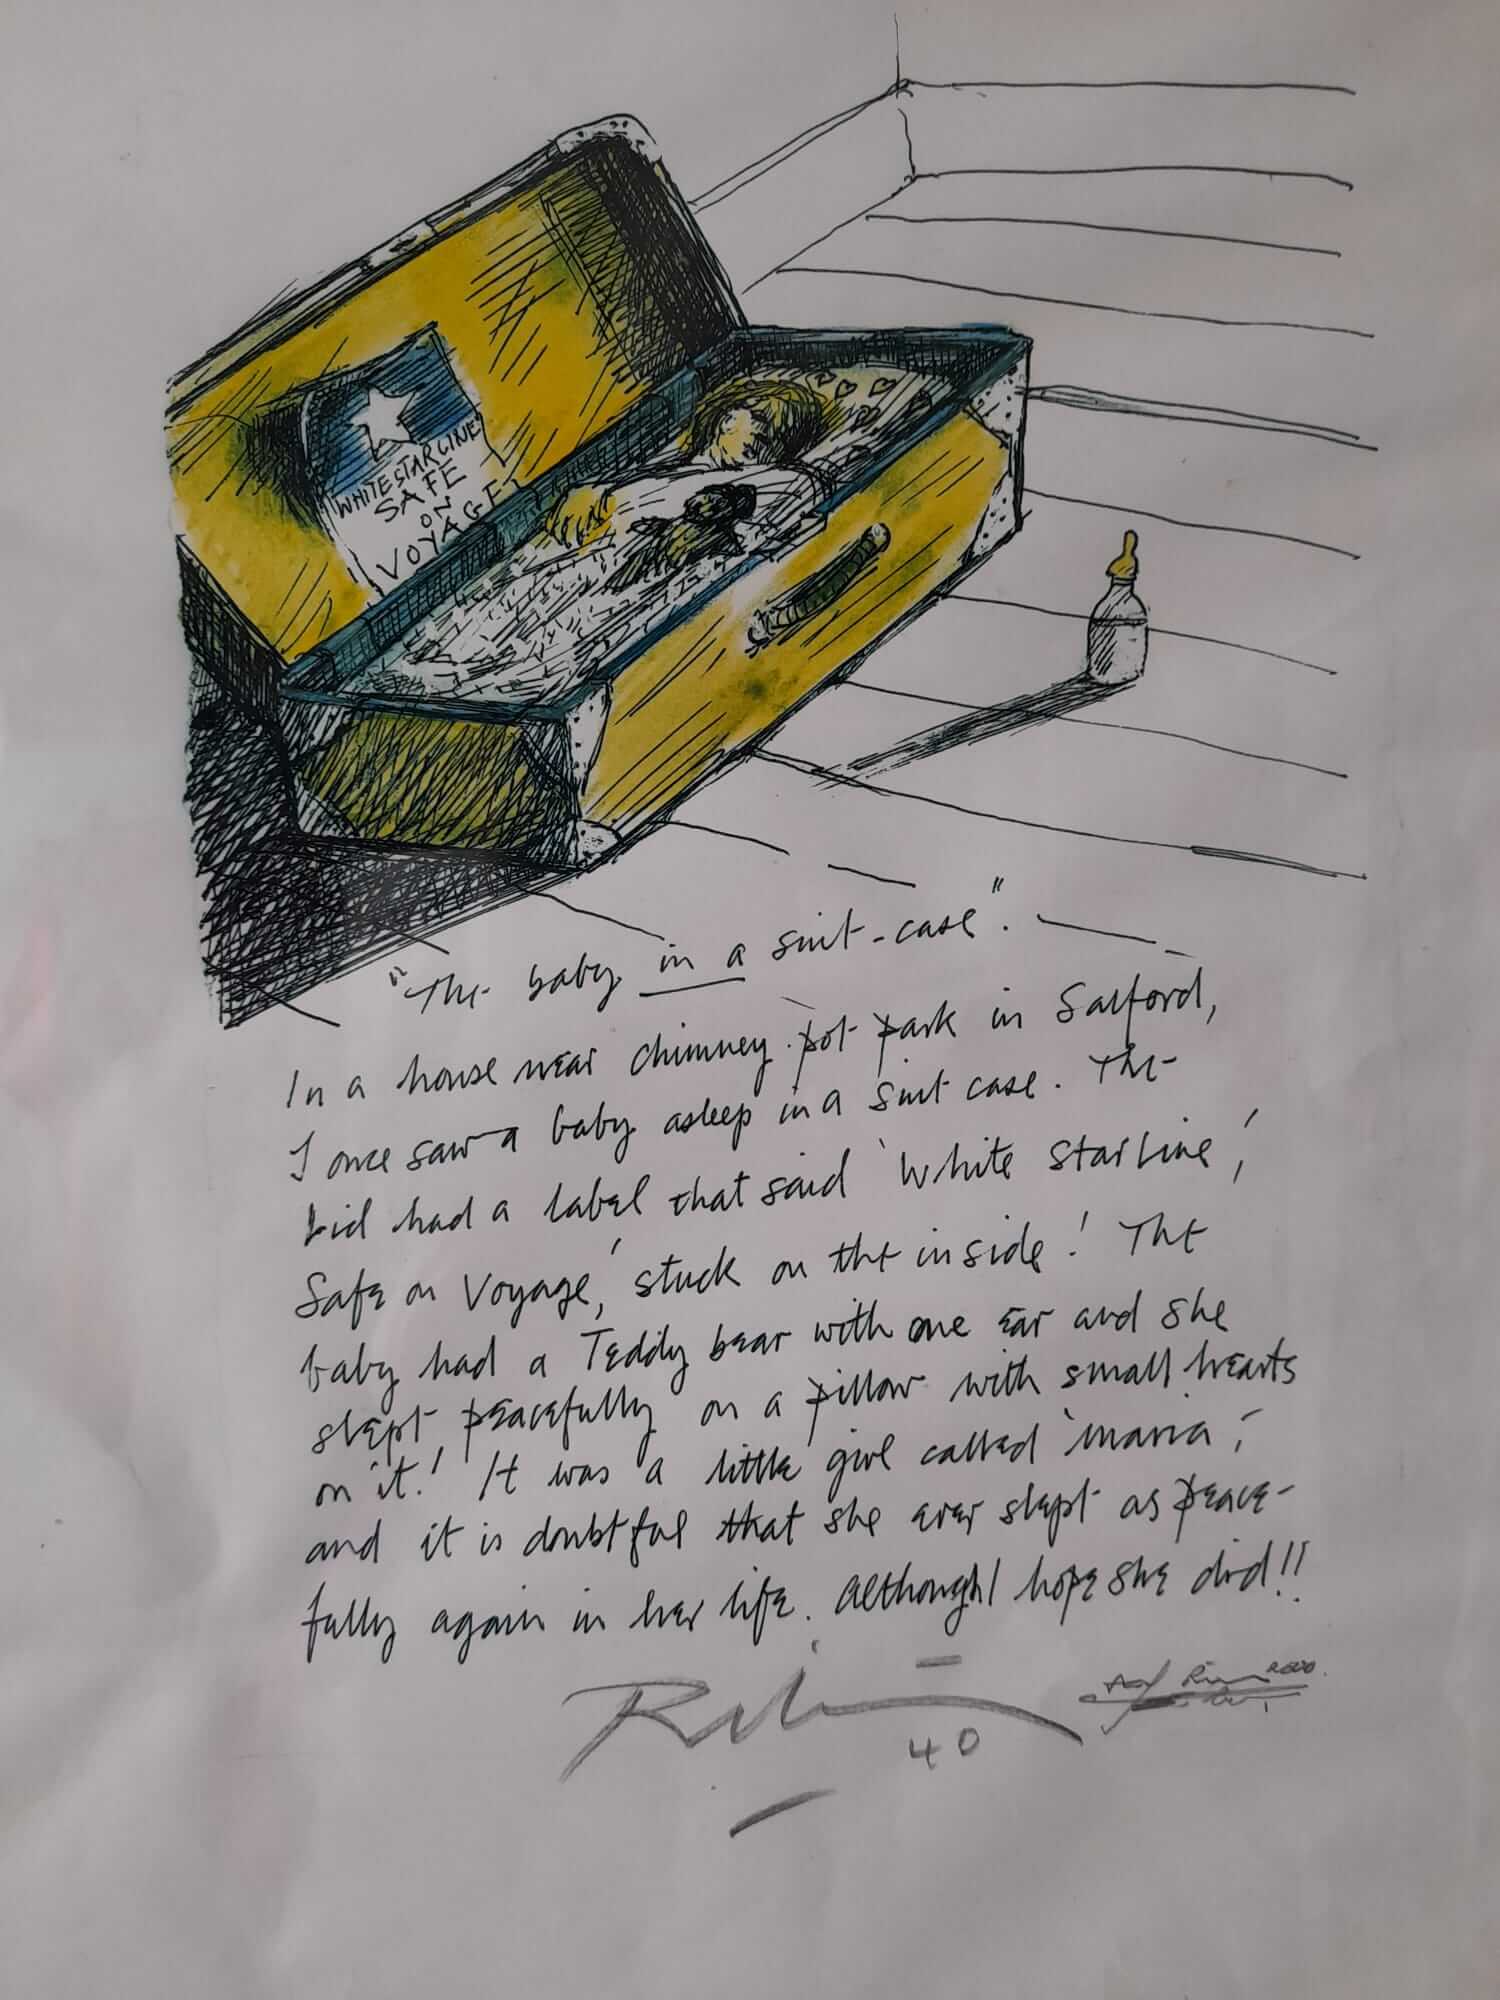 WHITE STAR LINE
SAFE
ON
VOYAGE
"The baby in a suit-case".
In a house near chimney.pot park in Salford,
I once saw a baby asleep in a suit case. The
lid had a label that said 'White Star Line,'
Safe on Voyage,' stuck on the inside! The
baby had a Teddy bear with one ear and she
slept peacefully on a pillow with small hearts
on it! It was a little girl called 'maria',
and it is doubtful that she ever slept as peace-
fully again in her life. Although I hope she did!!
40